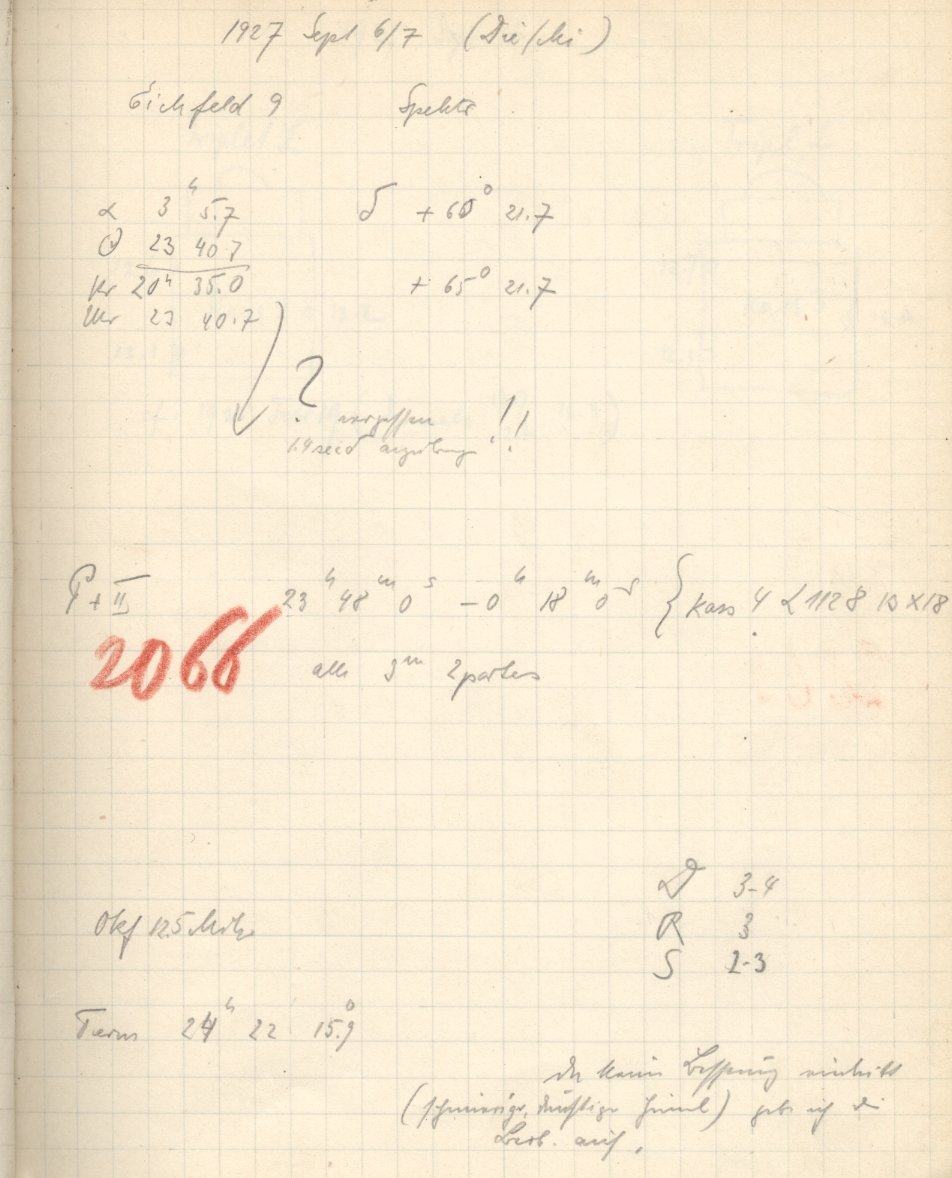 1927 Sept 6/7 (Die/Mi)
Eichfeld 9 Spektr
α 3ʰ 5.7 δ +65° 21.7
Θ 23 40.7
Kr 20ʰ 35.0 +65° 21.7
Uhr 23 40.7
? vergessen !!
1.4 seed
P + II 23ʰ 48ᵐ 0ˢ – 0ʰ 18ᵐ 0ˢ { Kass 4 L 1128 13 X 18
2066 alle 3ᵐ 2 partes
D 3-4
Okf 12.5 R 3
S 2-3
Term 24ʰ 22 15.°9
Da keine Besserung eintritt
(schmieriger, dunstiger Himmel) gebe ich die
Beob. auf.